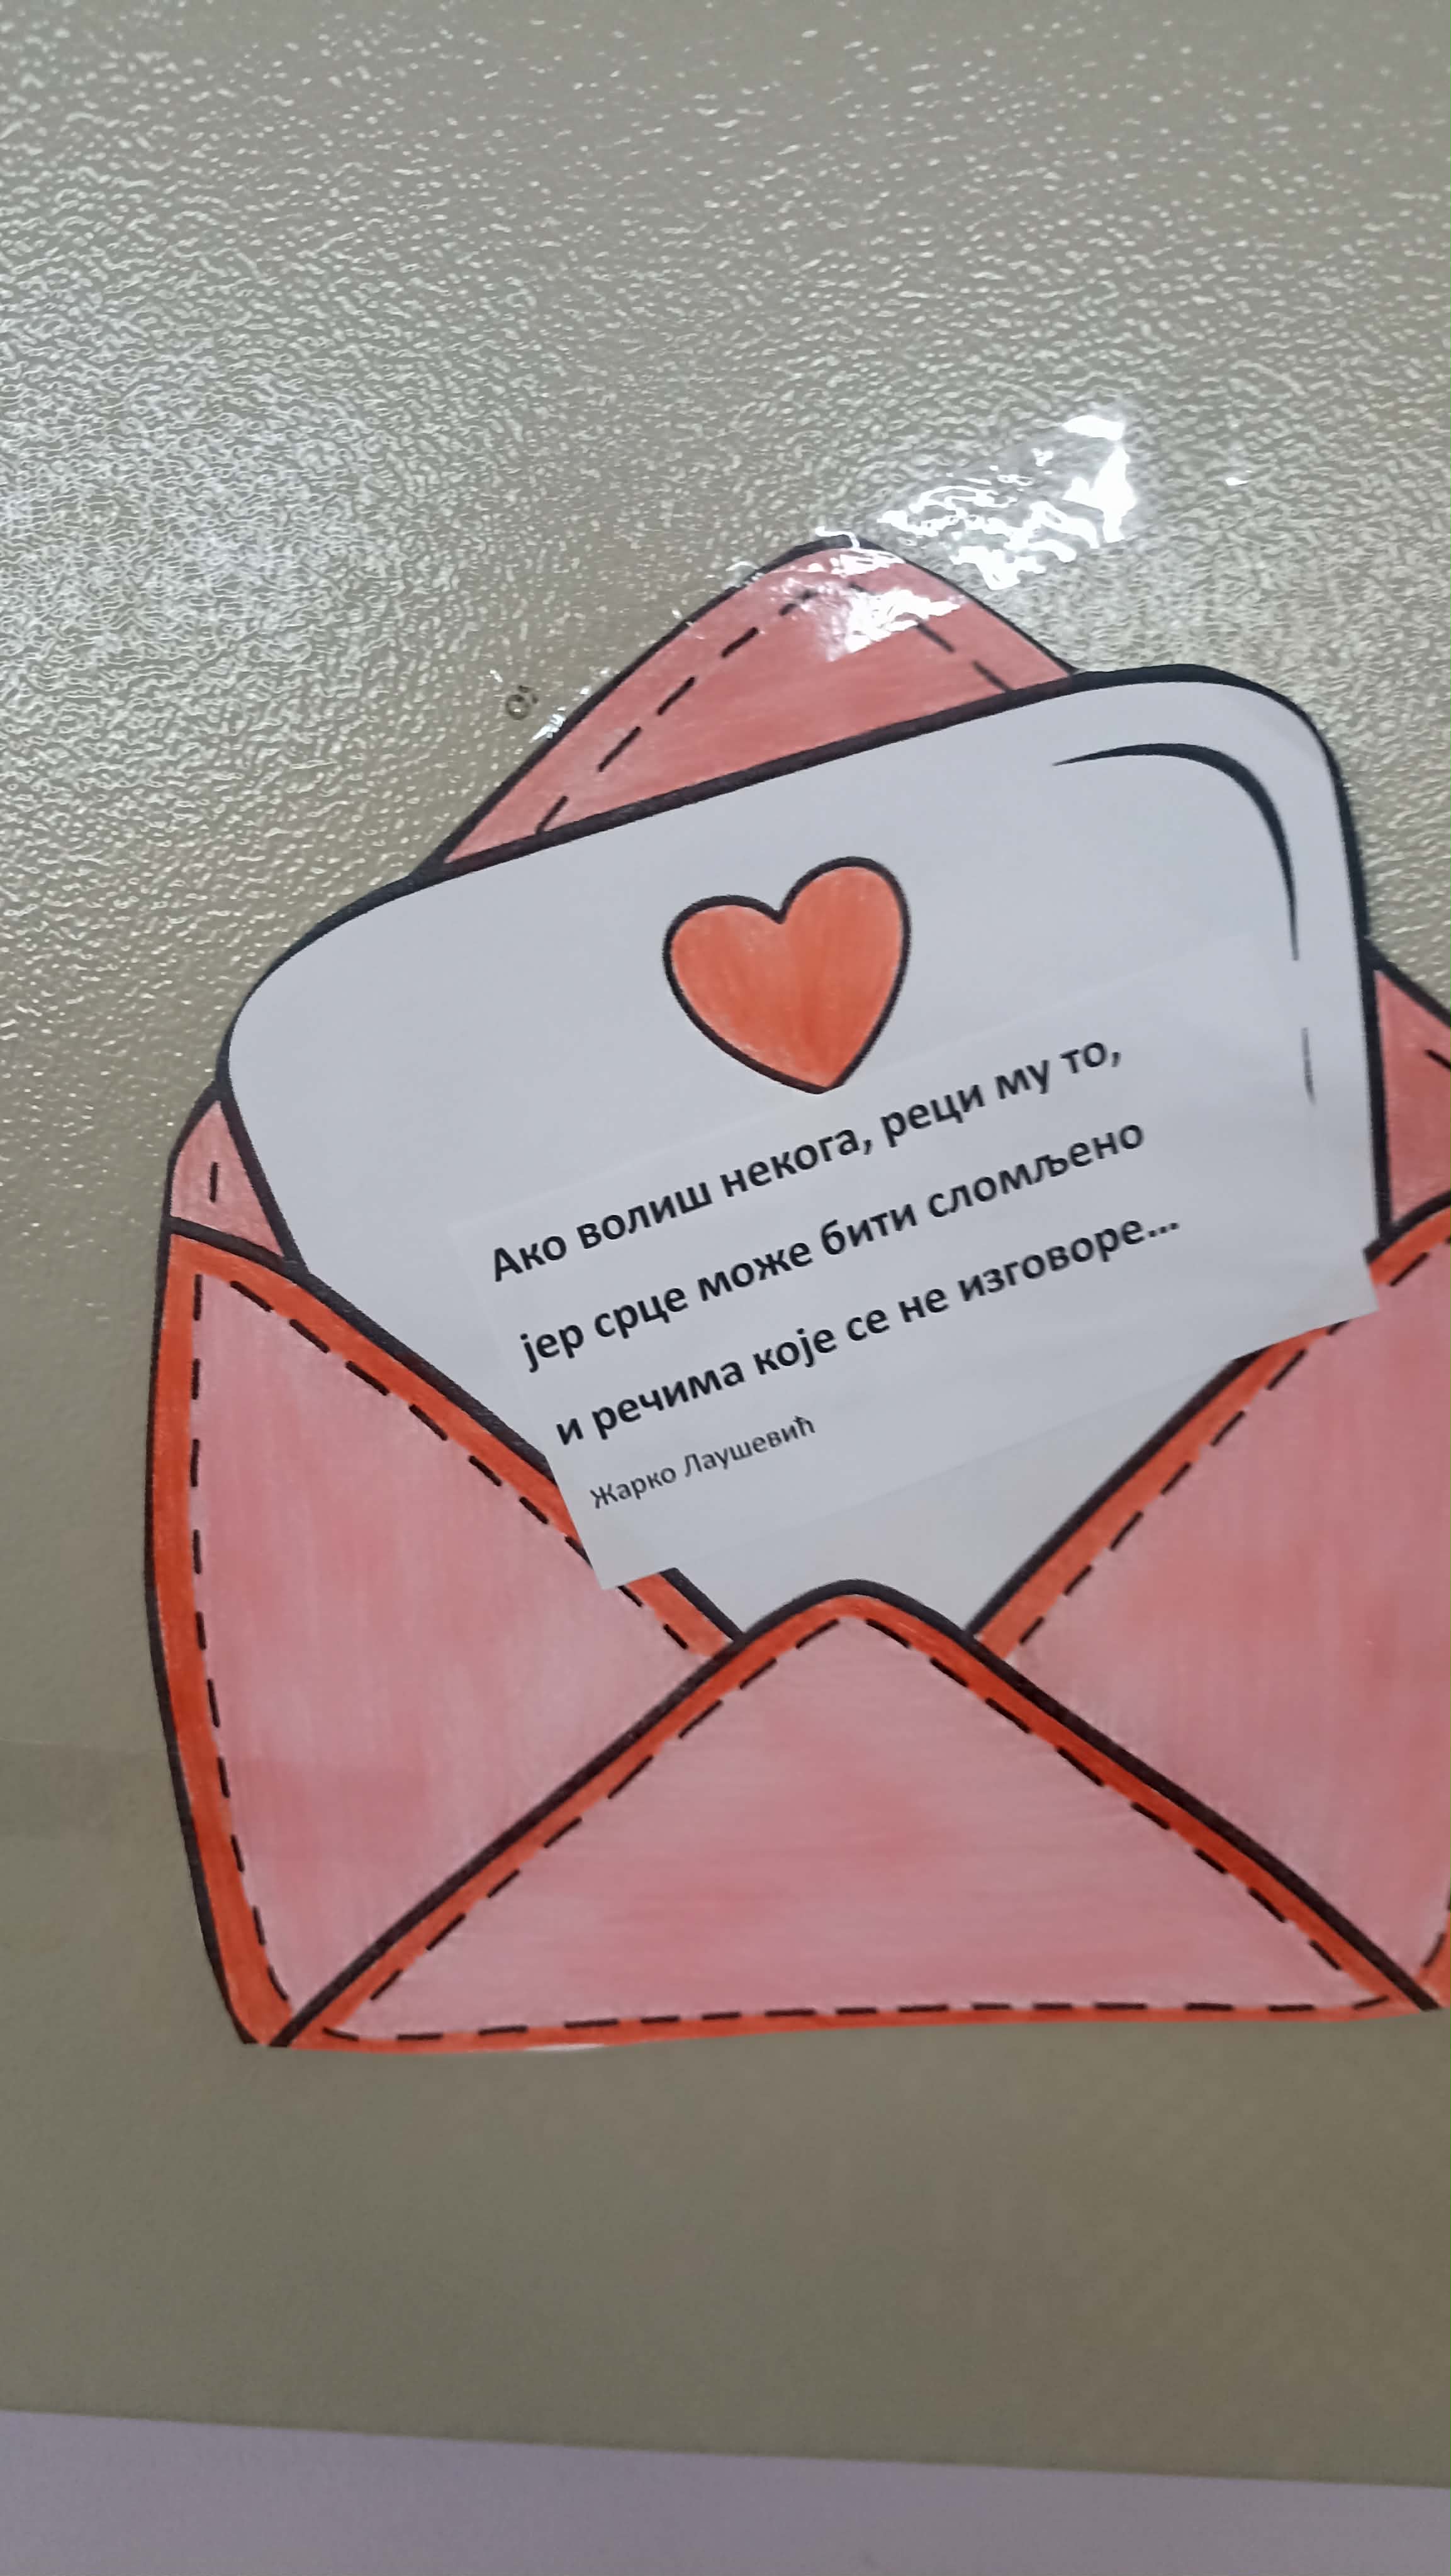 Ако волиш некога, реци му то,
јер срце може бити сломљено
и речима које се не изговоре...
Жарко Лаушевић